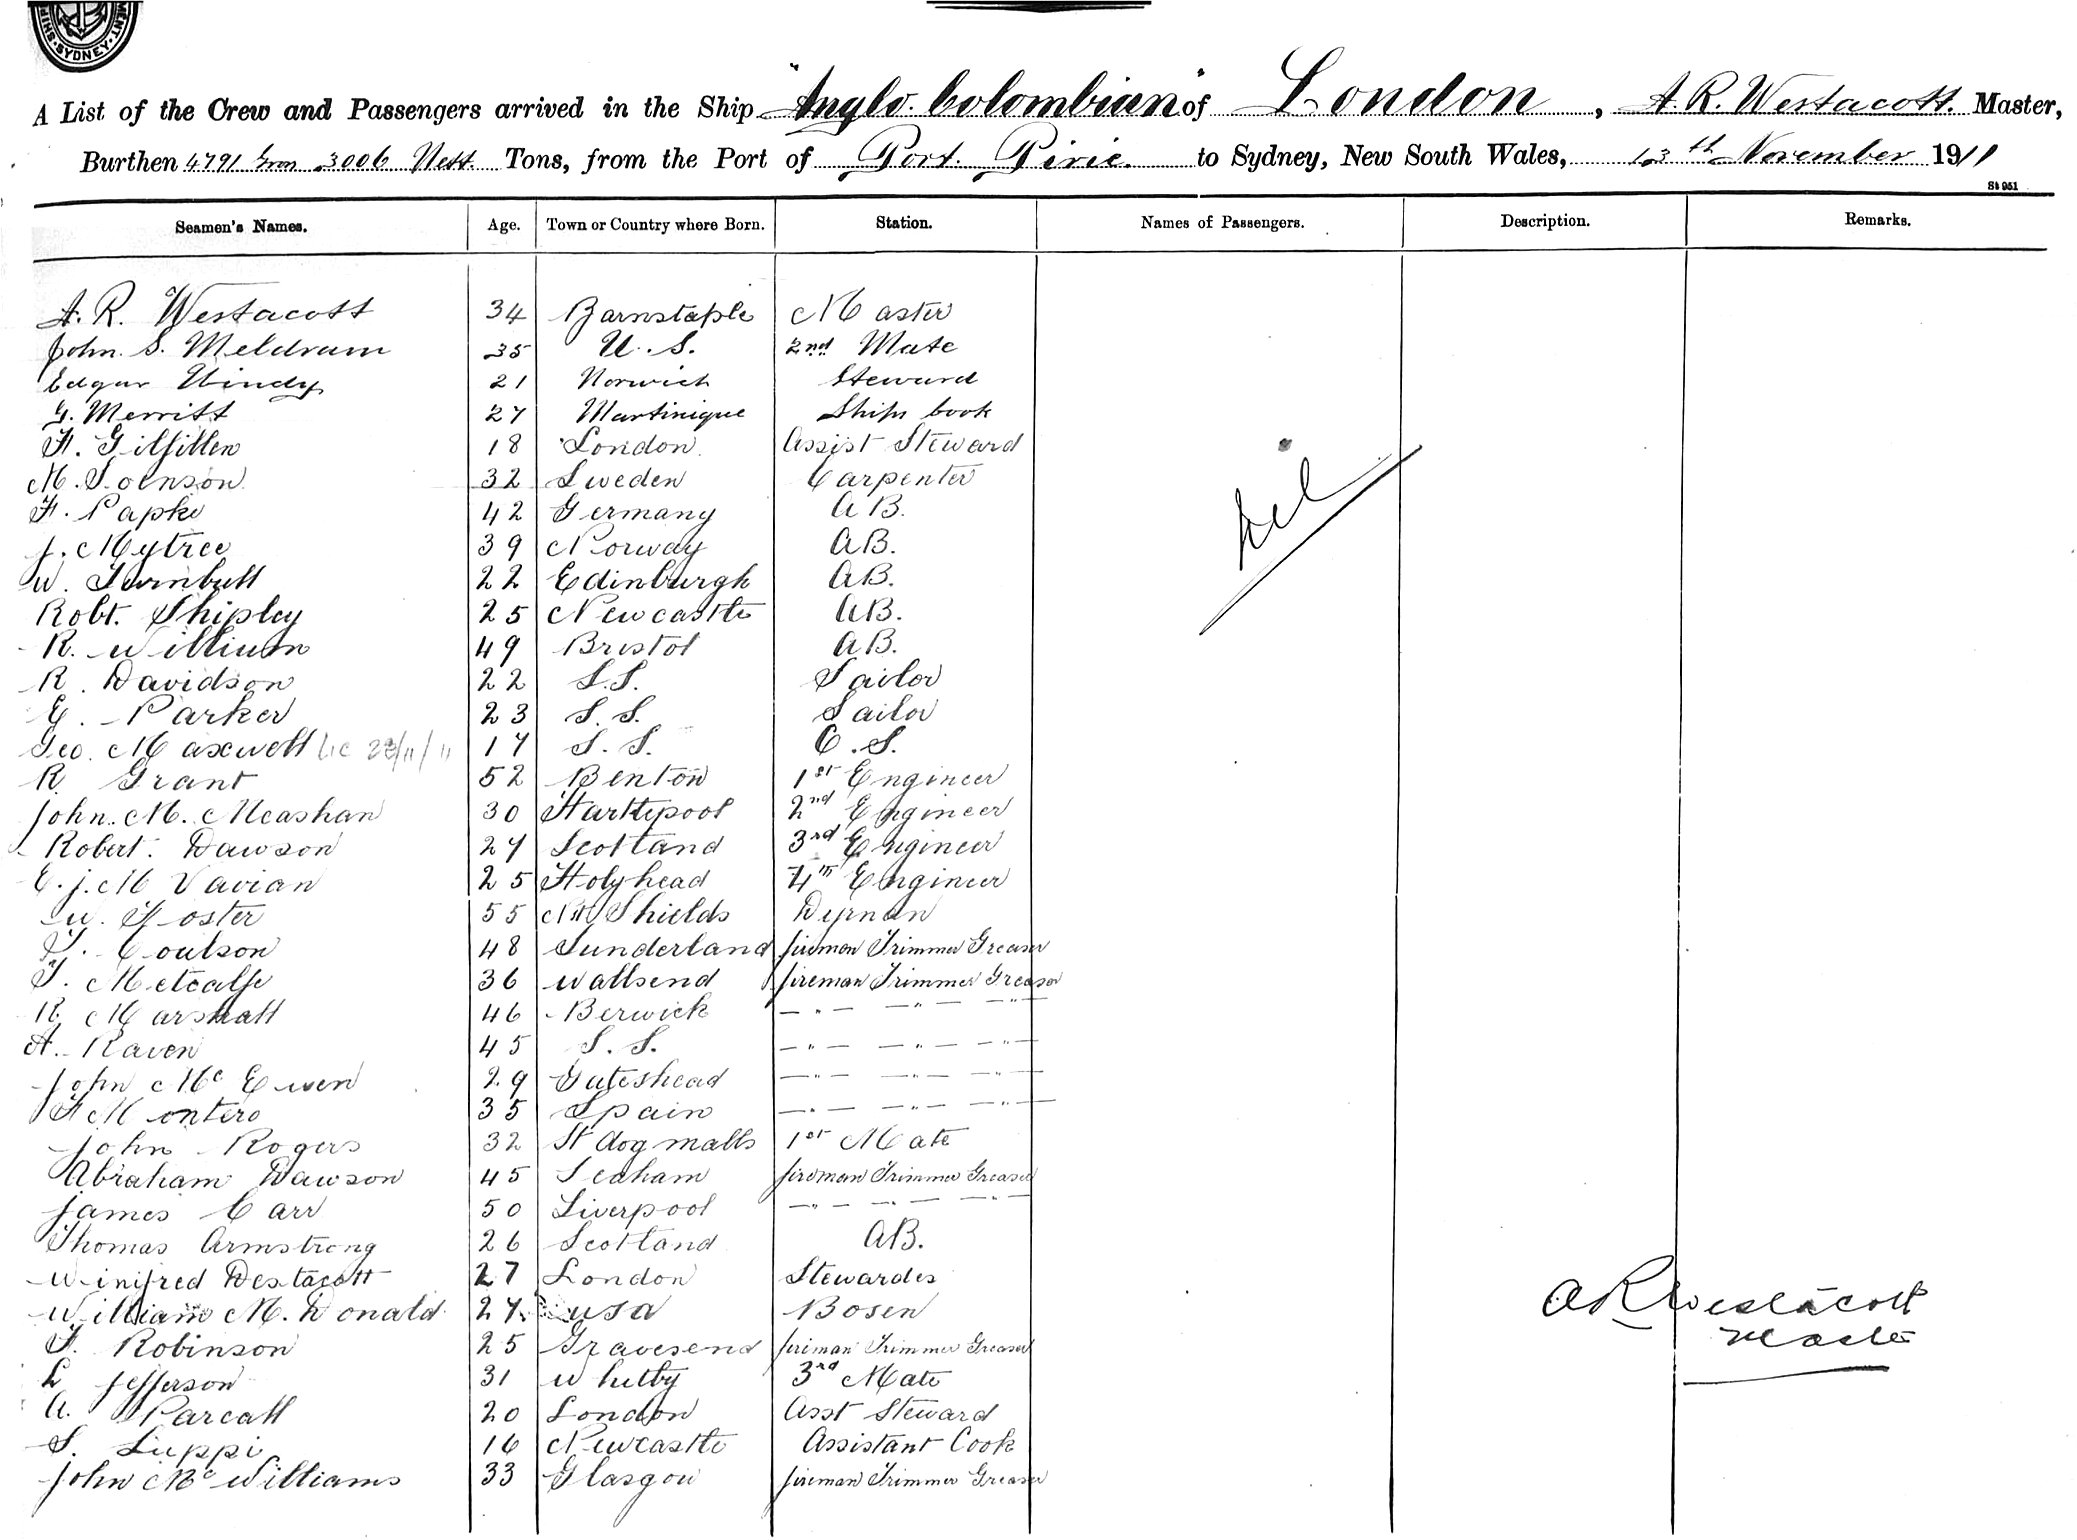 SYDNEY
A List of the Crew and Passengers arrived in the Ship "Anglo. Colombian" of London, A. R. Westacott. Master,
Burthen 4791 Gross 3006 Nett. Tons, from the Port of Port. Pirie. to Sydney, New South Wales, 13th November 1911
St 951
Seamen's Names. Age. Town or Country where Born. Station. Names of Passengers. Description. Remarks.
A. R. Westacott 34 Barnstaple Master
John. S. Meldrum 35 U.S. 2nd Mate
Edgar Windy 21 Norwich Steward
G. Merritt 27 Martinique Ships Cook
F. Gilfillen 18 London. Assist Steward
M. Soenson 32 Sweden Carpenter
F. Papke 42 Germany A B.
J. Mytree 39 Norway AB.
W. Turnbull 22 Edinburgh AB.
Robt. Shipley 25 Newcastle AB.
R. William 49 Bristol AB.
R. Davidson 22 S.S. Sailor
E. Parker 23 S.S. Sailor
Geo. Maxwell 23/11/11 17 S.S. O.S.
R. Grant 52 Benton 1st Engineer
John. M. Meashan 30 Hartlepool 2nd Engineer
Robert. Dawson 27 Scotland 3rd Engineer
E. J. M Vavian 25 Holyhead 4th Engineer
W. Foster 55 Nth Shields
T. Coulson 48 Sunderland fireman Trimmer Greaser
T. Metcalfe 36 Wallsend fireman Trimmer Greaser
R. Marshall 46 Berwick — " — — " — — " —
A. Raven 45 S.S. — " — — " — — " —
John Mc Ewen 29 Gateshead — " — — " — — " —
F Montero 35 Spain — " — — " — — " —
John Rogers 32 St dogmalls 1st Mate
Abraham Dawson 45 Seaham fireman Trimmer Greaser
James Carr 50 Liverpool — " — — " — — " —
Thomas Armstrong 26 Scotland AB.
Winifred Westacott 27 London Stewardes
William M. Donald 27. USA Bosen
T. Robinson 25 Gravesend fireman Trimmer Greaser
L Jefferson 31 Whitby 3rd Mate
A. Parcall 20 London Asst Steward
S. Luppi 16 Newcastle Assistant Cook
John Mc Williams 33 Glasgow fireman Trimmer Greaser
Nil
A R Westacott
Master